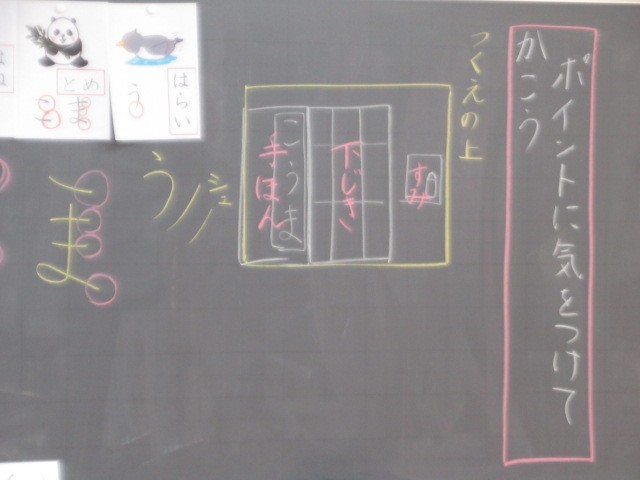 ポイントに気をつけて
かこう
つくえの上
すみ
下じき
こうま
手ほん
シュッ
う
はらい
う
とめ
ま
ま